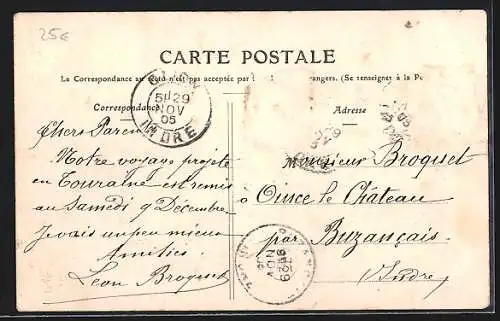 25€
CARTE POSTALE
La Correspondance au recto n'est pas acceptée par angers. (Se renseigner à la Po
Correspondance
Adresse
5E 29
NOV
05
INDRE
Chers Parents
Notre voyage projeté
en Touraine est remis
au Samedi 9 Décembre
Je vais un peu mieux
Amitiés
Léon Broquet
Monsieur Broquet
à Oince le Château
par Buzançais
(Indre)
NOV